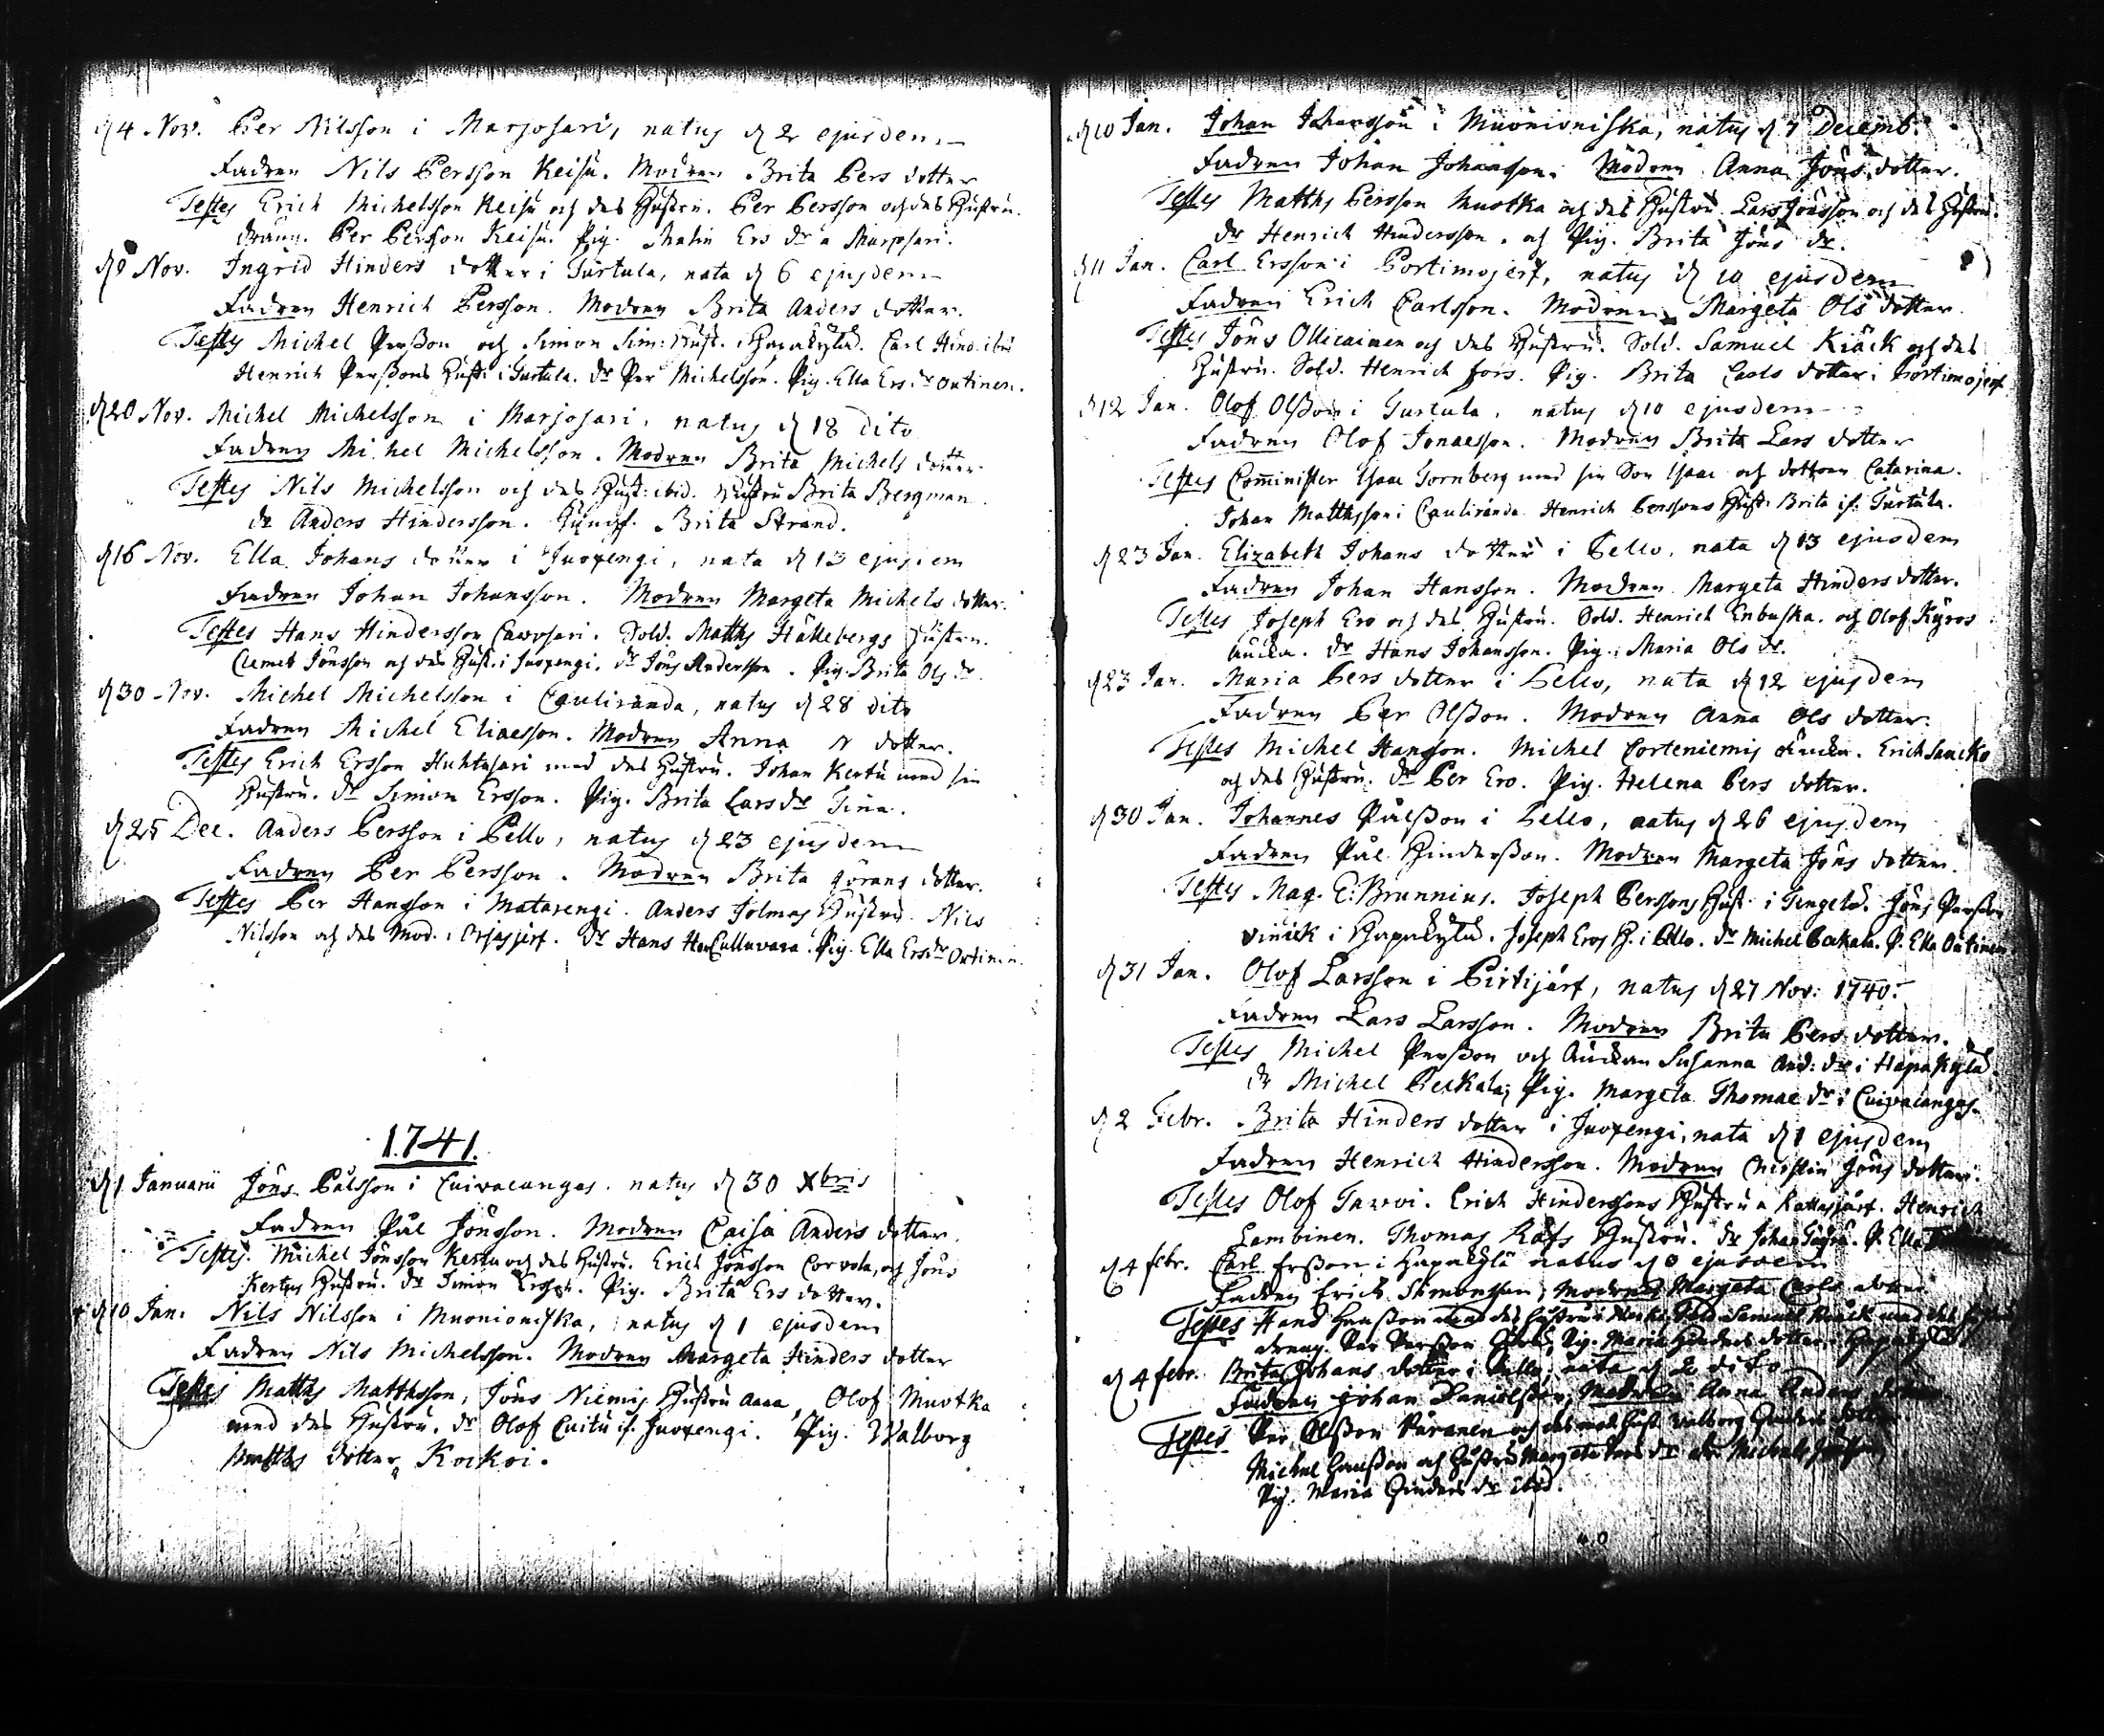 d 4 Nov. Per Nilsson i Marjosari, natus d 2 ejusdem
Fadren Nils Persson Keisu. Modren Brita Pers dotter
Testes Erich Michelsson Keisu och des Hustru. Per Persson och des Hustru.
dräng. Per Persson Keisu. Pig. Malin Ers dr a Marjosari.
d 8 Nov. Ingrid Hinders dotter i Turtula, nata d 6 ejusdem
Fadren Henrich Persson. Modren Brita Anders dotter.
Testes Michel Perßon och Simon Sim: Hust. i Haapakylä. Carl Hind. ibid
Henrich Perßons Hust: i Turtula. dr Per Michelsson. Pig. Ella Ers dr Outinen.
d 20 Nov. Michel Michelsson i Marjosari, natus d 18 dito
Fadren Michel Michelsson. Modren Brita Michels dotter
Testes Nils Michelsson och des Hust: ibid. Hustru Brita Bergman
dr Anders Hindersson. Jungf. Brita Strand.
d 16 Nov. Ella Johans dotter i Juoxengi, nata d 13 ejusdem
Fadren Johan Johansson. Modren Margeta Michels dotter.
Testes Hans Hindersson Carosari. Sold. Matths Häkebergs Hustru.
Clemet Jönsson och des Hust. i Juoxengi. dr Jöns Andersson. Pig. Brita Ols dr
d 30 Nov. Michel Michelsson i Cauliranda, natus d 28 dito
Fadren Michel Eliaesson. Modren Anna N dotter.
Testes Erich Ersson Huhtasari med des Hustru. Johan Kertu med sin
Hustru. dr Simon Ersson. Pig. Brita Lars dr Tiua.
d 25 Dec. Anders Persson i Pello, natus d 23 ejusdem
Fadren Per Persson. Modren Brita Görans dotter.
Testes Per Hansson i Matarengi. Anders Jolmas Hustru. Nils
Nilsson och des Mod. i Orjasjerf. dr Hans Cullavara. Pig. Ella Ers dr Outinen.
1741.
d 1 Januarii Jöns Pålsson i Cuivacangas. natus d 30 Xbris
Fadren Pål Jönsson. Modren Caisa Anders dotter.
Testes. Michel Jönsson Kertu och des Hustru. Erich Jönsson Corvola, och Jöns
Kertus Hustru. dr Simon Ersson. Pig. Brita Ers dotter.
d 10 Jan. Nils Nilsson i Muonioniska, natus d 1 ejusdem
Fadren Nils Michelsson. Modren Margeta Hinders dotter
Testes Matths Matthsson, Jöns Niemis Hustru Anna, Olof Muotka
med des Hustru. dr Olof Cuitu if. Juoxengi. Pig. Walborg
Matths dotter Kockoi.
d 10 Jan. Johan Johansson i Muonioniska, natus d 7 Decemb.
Fadren Johan Johansson. Modren Anna Jöns dotter.
Testes Matths Persson Muotka och des Hustru. Lars Jönsson och des Hustru.
dr Henrich Hindersson. och Pig. Brita Jöns dr.
d 11 Jan. Carl Ersson i Portimojerf, natus d 10 ejusdem
Fadren Erich Carlsson. Modren Margeta Ols dotter
Testes Jöns Ollicainen och des Hustru. Sold. Samuel Kiäck och des
Hustru. Sold. Henrich Fors. Pig. Brita Carls dotter i Portimojerf
d 12 Jan. Olof Olßon i Turtula, natus d 10 ejusdem
Fadren Olof Jonaesson. Modren Brita Lars dotter
Testes Comminister Isaac Tornberg med sin Son Isaac och dottren Catarina.
Johan Matthsson i Cauliranda Henrich Perssons Hust. Brita if. Turtula.
d 23 Jan. Elizabeth Johans dotter i Pello. nata d 13 ejusdem
Fadren Johan Hansson. Modren Margeta Hinders dotter.
Testes Joseph Ero och des Hustru. Sold. Henrich Enbuska. och Olof Kyros
Änckia. dr Hans Johansson. Pig. Maria Ols dr.
d 23 Jan. Maria Pers dotter i Pello, nata d 12 ejusdem
Fadren Per Olßon. Modren Anna Ols dotter.
Testes Michel Hansson. Michel Corteniemis Änckia. Erich Saucko
och des Hustru. dr Per Ero. Pig. Helena Pers dotter.
d 30 Jan. Johannes Pålßon i Pello, natus d 26 ejusdem
Fadren Pål Hinderßon. Modren Margeta Jöns dotter.
Testes Mag. E: Brunnius. Joseph Perssons Hust. i Tengelö. Jöns Perßon
Vinick i Haapakylä. Joseph Eros H. i Pello. dr Michel Peckala. P. Ella Outinen
d 31 Jan. Olof Larsson i Pirtijärf, natus d 27 Nov: 1740.
Fadren Lars Larsson. Modren Brita Pers dotter.
Testes Michel Perßon och Änckian Susanna And: dr i Hapakylä
dr Michel Peckala, Pig. Margeta Thomae dr i Cuivacangas
d 2 Febr. Brita Hinders dotter i Juoxengi, nata d 1 ejusdem
Fadren Henrich Hindersson. Modren Chirstin Jöns dotter.
Testes Olof Tarvoi. Erich Hinderssons Hustru a Rattosjärf. Henrich
Lambinen. Thomas Räfs Hustru. dr Johan P. Ella
d 4 febr. Carl Erßon i Hapakylä natus d ejusdem
Fadren Erich Simonsson, Modren Margeta Carls dotter
Testes Hans Hanßon med des Hustru Sold. Samuel Kiäck med des Hustru
dreng. Per Perßon Pig. Maria Hinders dotter Hapakylä
d 4 febr. Brita Johans dotter i Pello, nata d 2 dito
Fadren Johan Danielsson, Modren Anna Anders dotter
Testes Per Olßon Varanen och des Hust Walborg Hinders dotter
Michel Hanßon och Hustru Margeta dr dr Michel
Pig. Maria Hinders dr ibid.